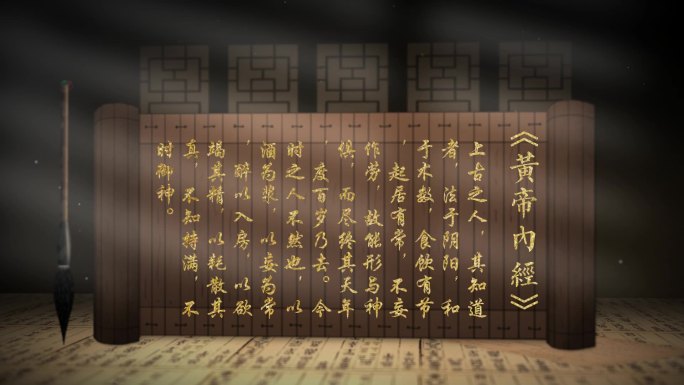 《黃帝內經》
上古之人，其知道
者，法于阴阳，和
于术数，食饮有节
，起居有常，不妄
作劳，故能形与神
俱，而尽终其天年
，度百岁乃去。今
时之人不然也，以
酒为浆，以妄为常
，醉以入房，以欲
竭其精，以耗散其
真，不知持满，不
时御神。